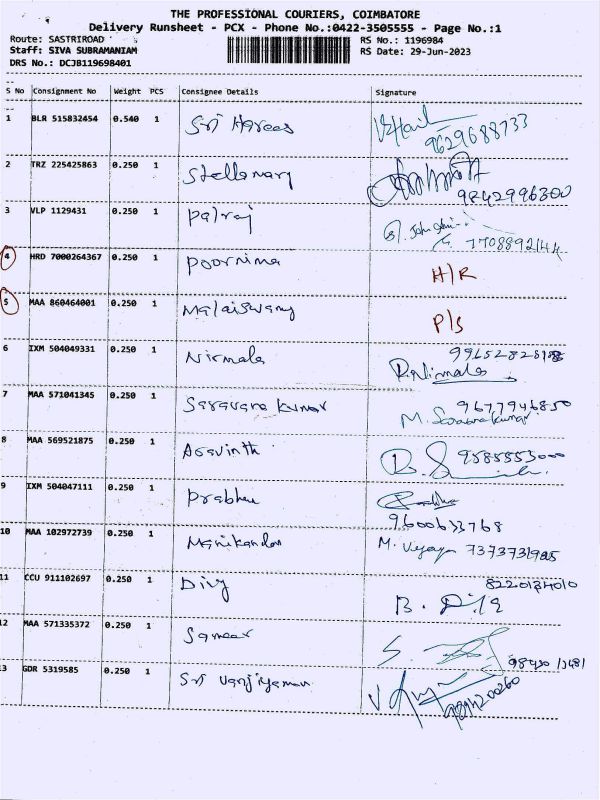 THE PROFESSIONAL COURIERS, COIMBATORE
Delivery Runsheet - PCX - Phone No.:0422-3505555 - Page No.:1
Route: SASTRIROAD RS No.: 1196984
Staff: SIVA SUBRAMANIAM RS Date: 29-Jun-2023
DRS No.: DCJB119698401
S No Consignment No Weight PCS Consignee Details Signature
1 BLR 515832454 0.540 1 Sri Harees
9629688733
2 TRZ 225425863 0.250 1 Stellamary
9842996300
3 VLP 1129431 0.250 1 Palraj
7708892144
4 HRD 7000264367 0.250 1 Poornima H/R
5 MAA 860464001 0.250 1 Malaiswamy P/S
6 IXM 504049331 0.250 1 Nirmala R.Nirmala
7 MAA 571041345 0.250 1 Saravana Kumar 9677946850
M. Saravanakumar
8 MAA 569521875 0.250 1 Aravinth 9585553000
9 IXM 504047111 0.250 1 Prabhu
9600633768
10 MAA 102972739 0.250 1 Manikandan M. Vijaya
11 CCU 911102697 0.250 1 Divy
B.
12 MAA 571335372 0.250 1 Sameer S.
13 GDR 5319585 0.250 1 Sri